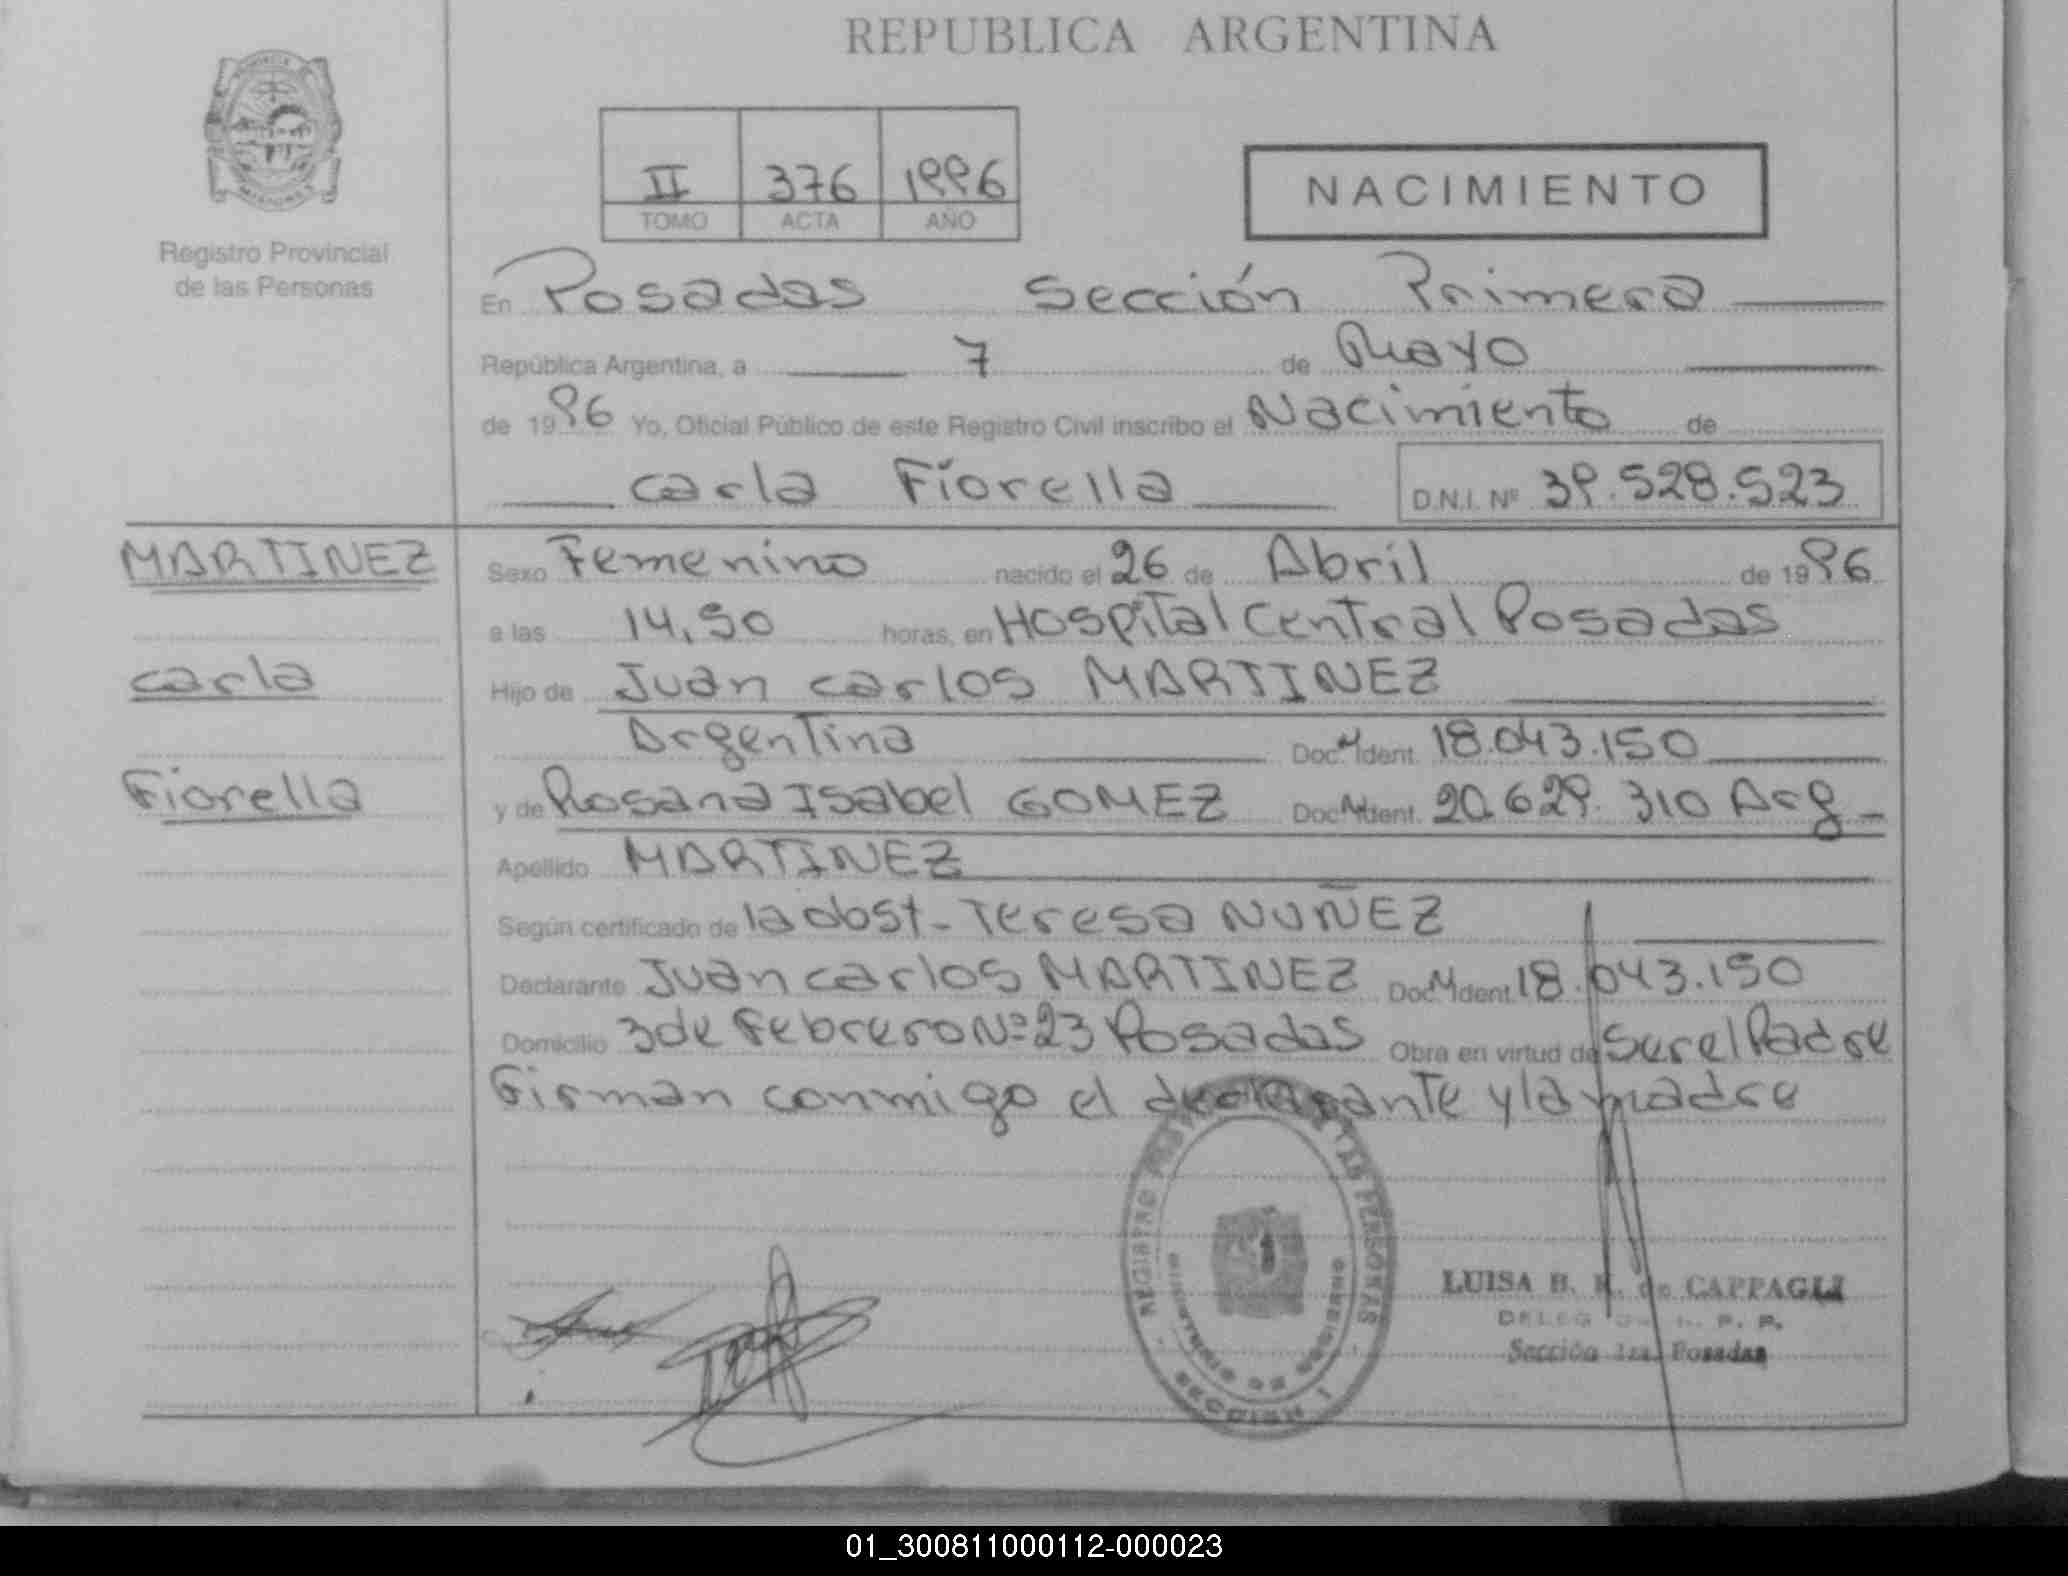 REPUBLICA ARGENTINA
II 376 1996
TOMO ACTA AÑO
NACIMIENTO
Registro Provincial
de las Personas
En Posadas Sección Primera
República Argentina, a 7 de Mayo
de 1996 Yo, Oficial Público de este Registro Civil inscribo el Nacimiento de
Carla Fiorella D.N.I. Nº 39.528.523
MARTINEZ
Carla
Fiorella
Sexo Femenino nacido el 26 de Abril de 1996
a las 14,50 horas, en Hospital Central Posadas
Hijo de Juan Carlos MARTINEZ
Argentina Doc. Ident. 18.043.150
y de Rosana Isabel GOMEZ Doc. Ident. 20.629.310 Arg
Apellido MARTINEZ
Según certificado de la obst- Teresa NUÑEZ
Declarante Juan Carlos MARTINEZ Doc. Ident. 18.043.150
Domicilio 3 de Febrero Nº 23 Posadas Obra en virtud de Ser el Padre
Firman conmigo el declarante y la madre
REGISTRO LAS PERSONAS
MINISTERIO DE GOBIERNO
SECCION 1
LUISA B. de CAPPAGLI
Sección 1ra. Posadas
01_300811000112-000023